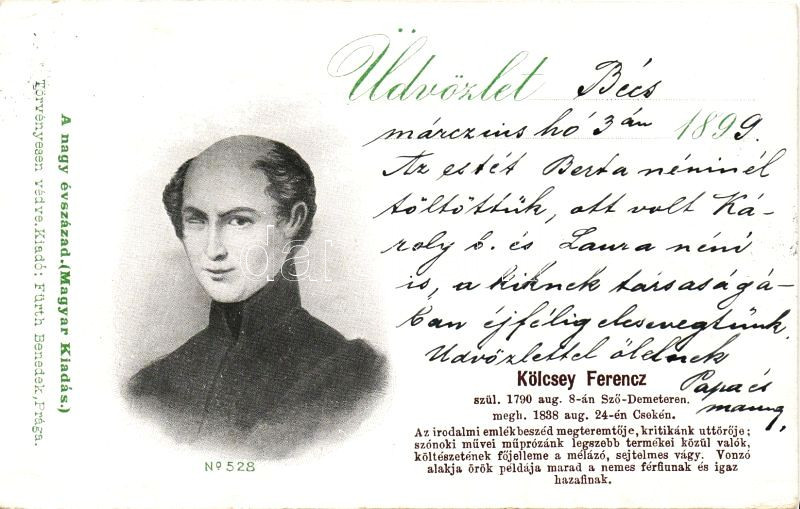 Üdvözlet Bécs
márczius hó 3 án 1899.
Az estét Berta néninél
töltöttük, ott volt Ká-
roly b. és Laura néni
is, a kiknek társaságá-
ban éjfélig elcsevegtünk.
Üdvözlettel ölelnek
Papa és
mama
Kölcsey Ferencz
szül. 1790 aug. 8-án Sző-Demeteren.
megh. 1838 aug. 24-én Csekén.
Az irodalmi emlékbeszéd megteremtője, kritikánk uttörője;
szónoki művei műprózánk legszebb termékei közül valók,
költészetének főjelleme a mélázó, sejtelmes vágy. Vonzó
alakja örök példája marad a nemes férfiunak és igaz
hazafinak.
No 528
A nagy évszázad. (Magyar Kiadás.)
Törvényesen védve. Kiadó: Fürth Benedek, Prága.
darabanth